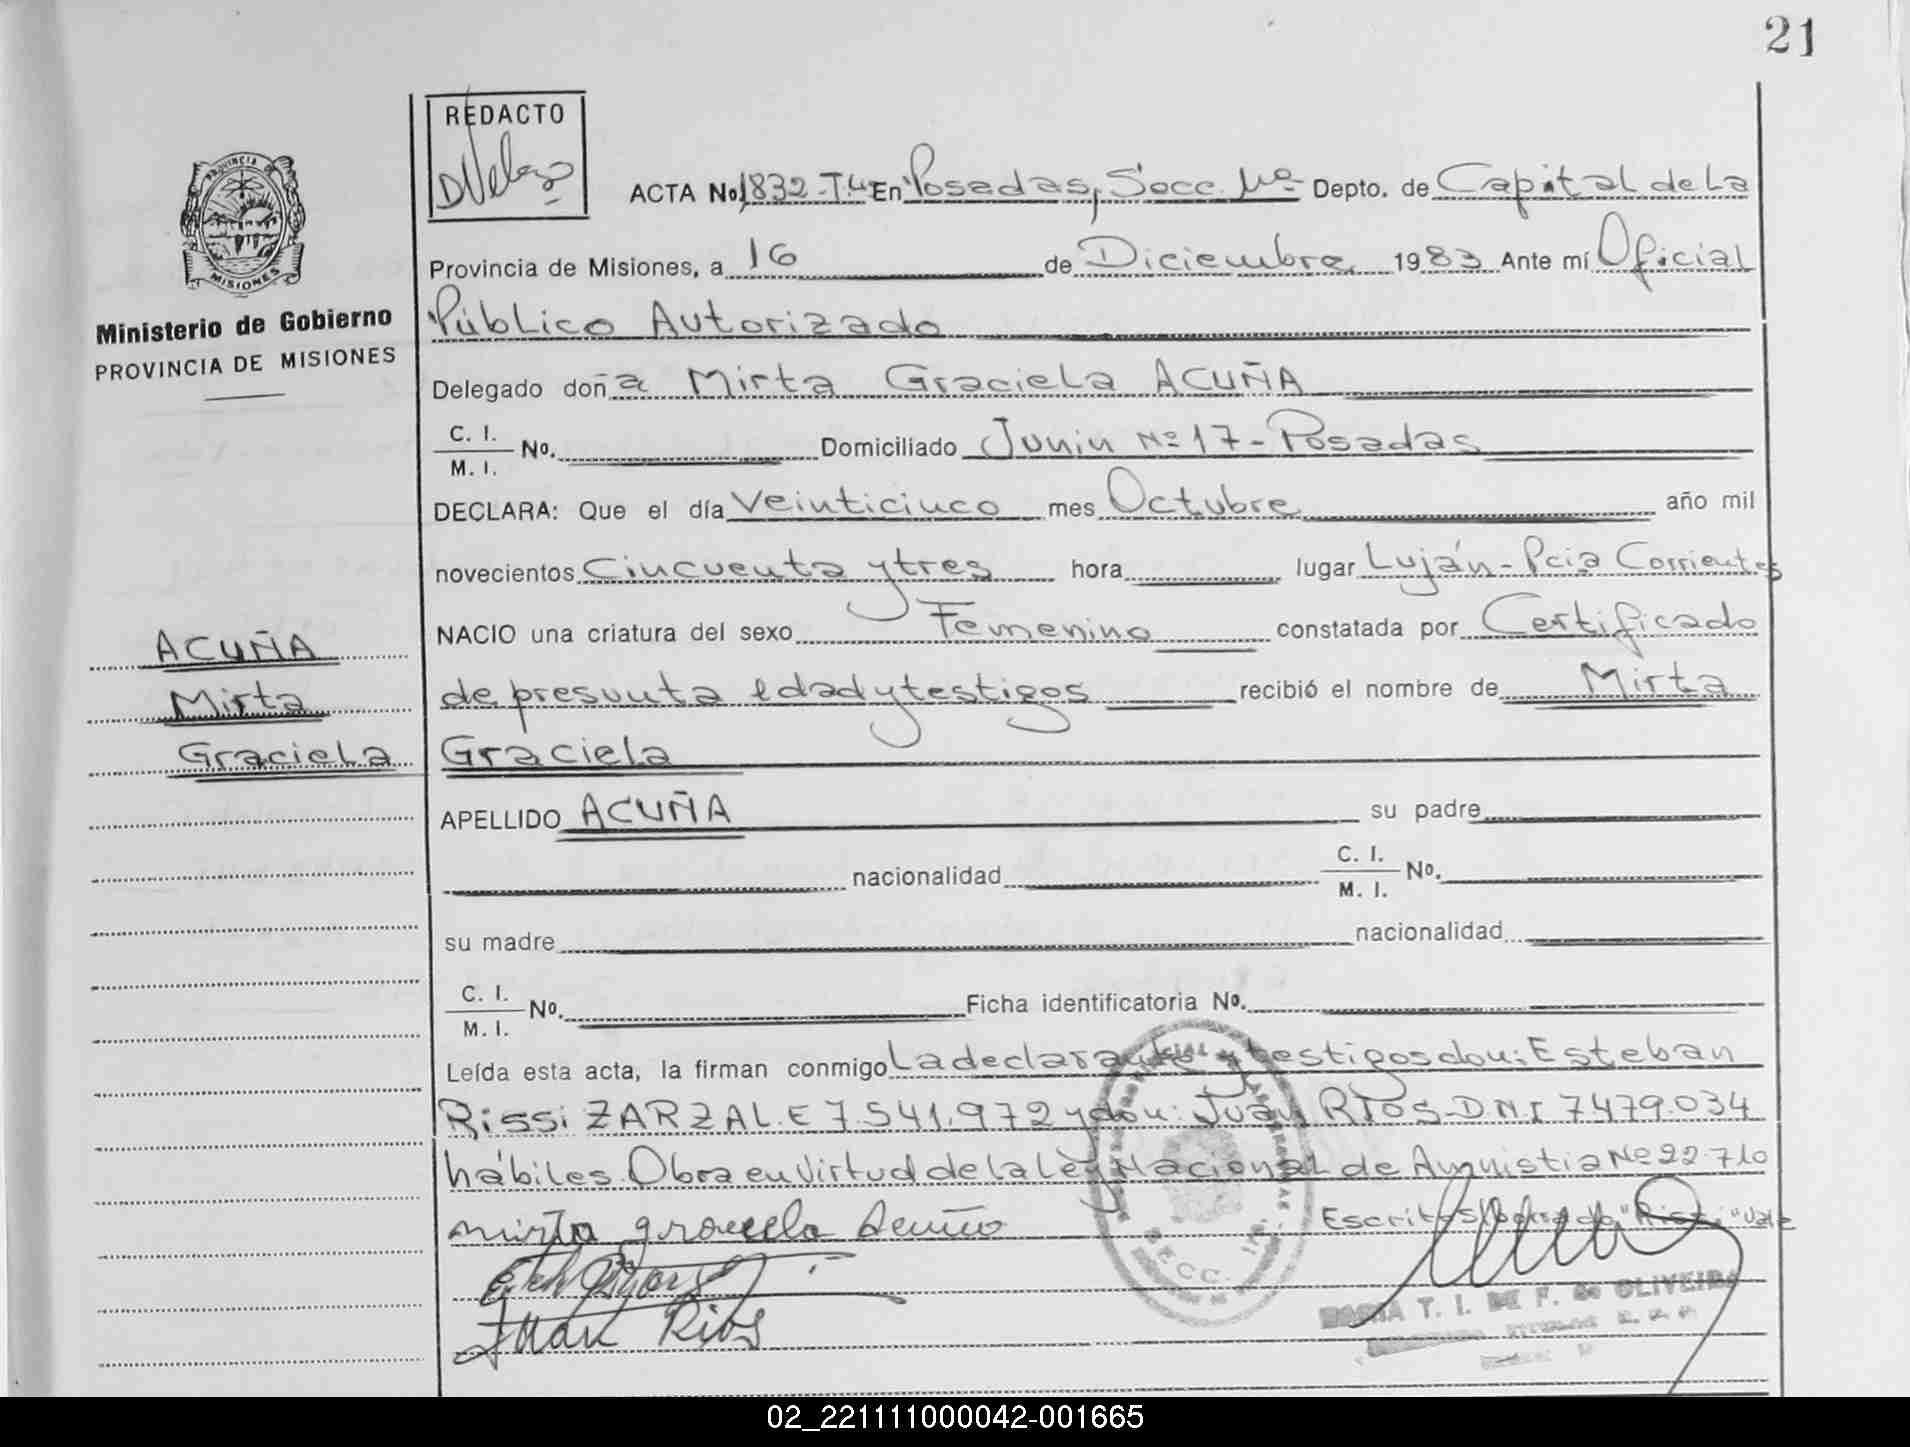 21
REDACTO
DVelazo
ACTA No. 1832-T4º En Posadas, Secc. 1ra Depto. de Capital de La
PROVINCIA DE
MISIONES
Provincia de Misiones, a 16 de Diciembre 1983 Ante mí Oficial
Ministerio de Gobierno
PROVINCIA DE MISIONES
Público Autorizado
Delegado doña Mirta Graciela ACUÑA
C. I.
M. I. No. Domiciliado Junin Nº 17 - Posadas
DECLARA: Que el día Veinticinco mes Octubre año mil
novecientos Cincuenta y tres hora lugar Luján - Pcia Corrientes
NACIO una criatura del sexo Femenino constatada por Certificado
de presunta edad y testigos recibió el nombre de Mirta
Graciela
ACUÑA
Mirta
Graciela
APELLIDO ACUÑA su padre
nacionalidad C. I.
M. I. No.
su madre nacionalidad
C. I.
M. I. No. Ficha identificatoria No.
Leída esta acta, la firman conmigo La declarante y testigos don: Esteban
Rissi ZARZA L.E 7.541.972 y don: Juan RIOS-D.N.I 7.479.034
hábiles. Obra en Virtud de la Ley Nacional de Amnistia Nº 22.710
mirta graciela Acuña Escrito s/borrado "Rissi" Vale
Juan Rios
SECC. 1ra.
MARIA T. I. DE F. de OLIVEIRA
02_221111000042-001665